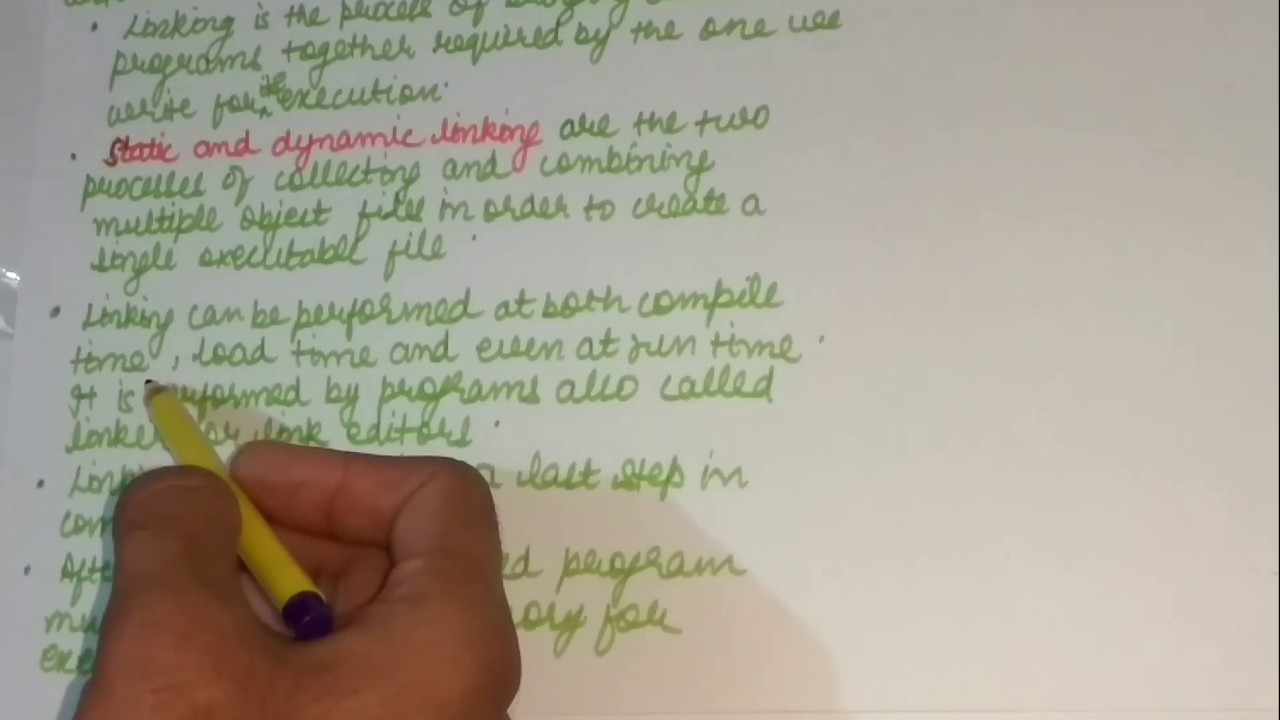 • Linking is the process of
programs together required by the one we
write for its execution.
• Static and dynamic linking are the two
processes of collecting and combining
multiple object files in order to create a
single executable file.
• Linking can be performed at both compile
time, load time and even at run time.
It is performed by programs also called
linkers or link editors.
• a last step in
• program
for